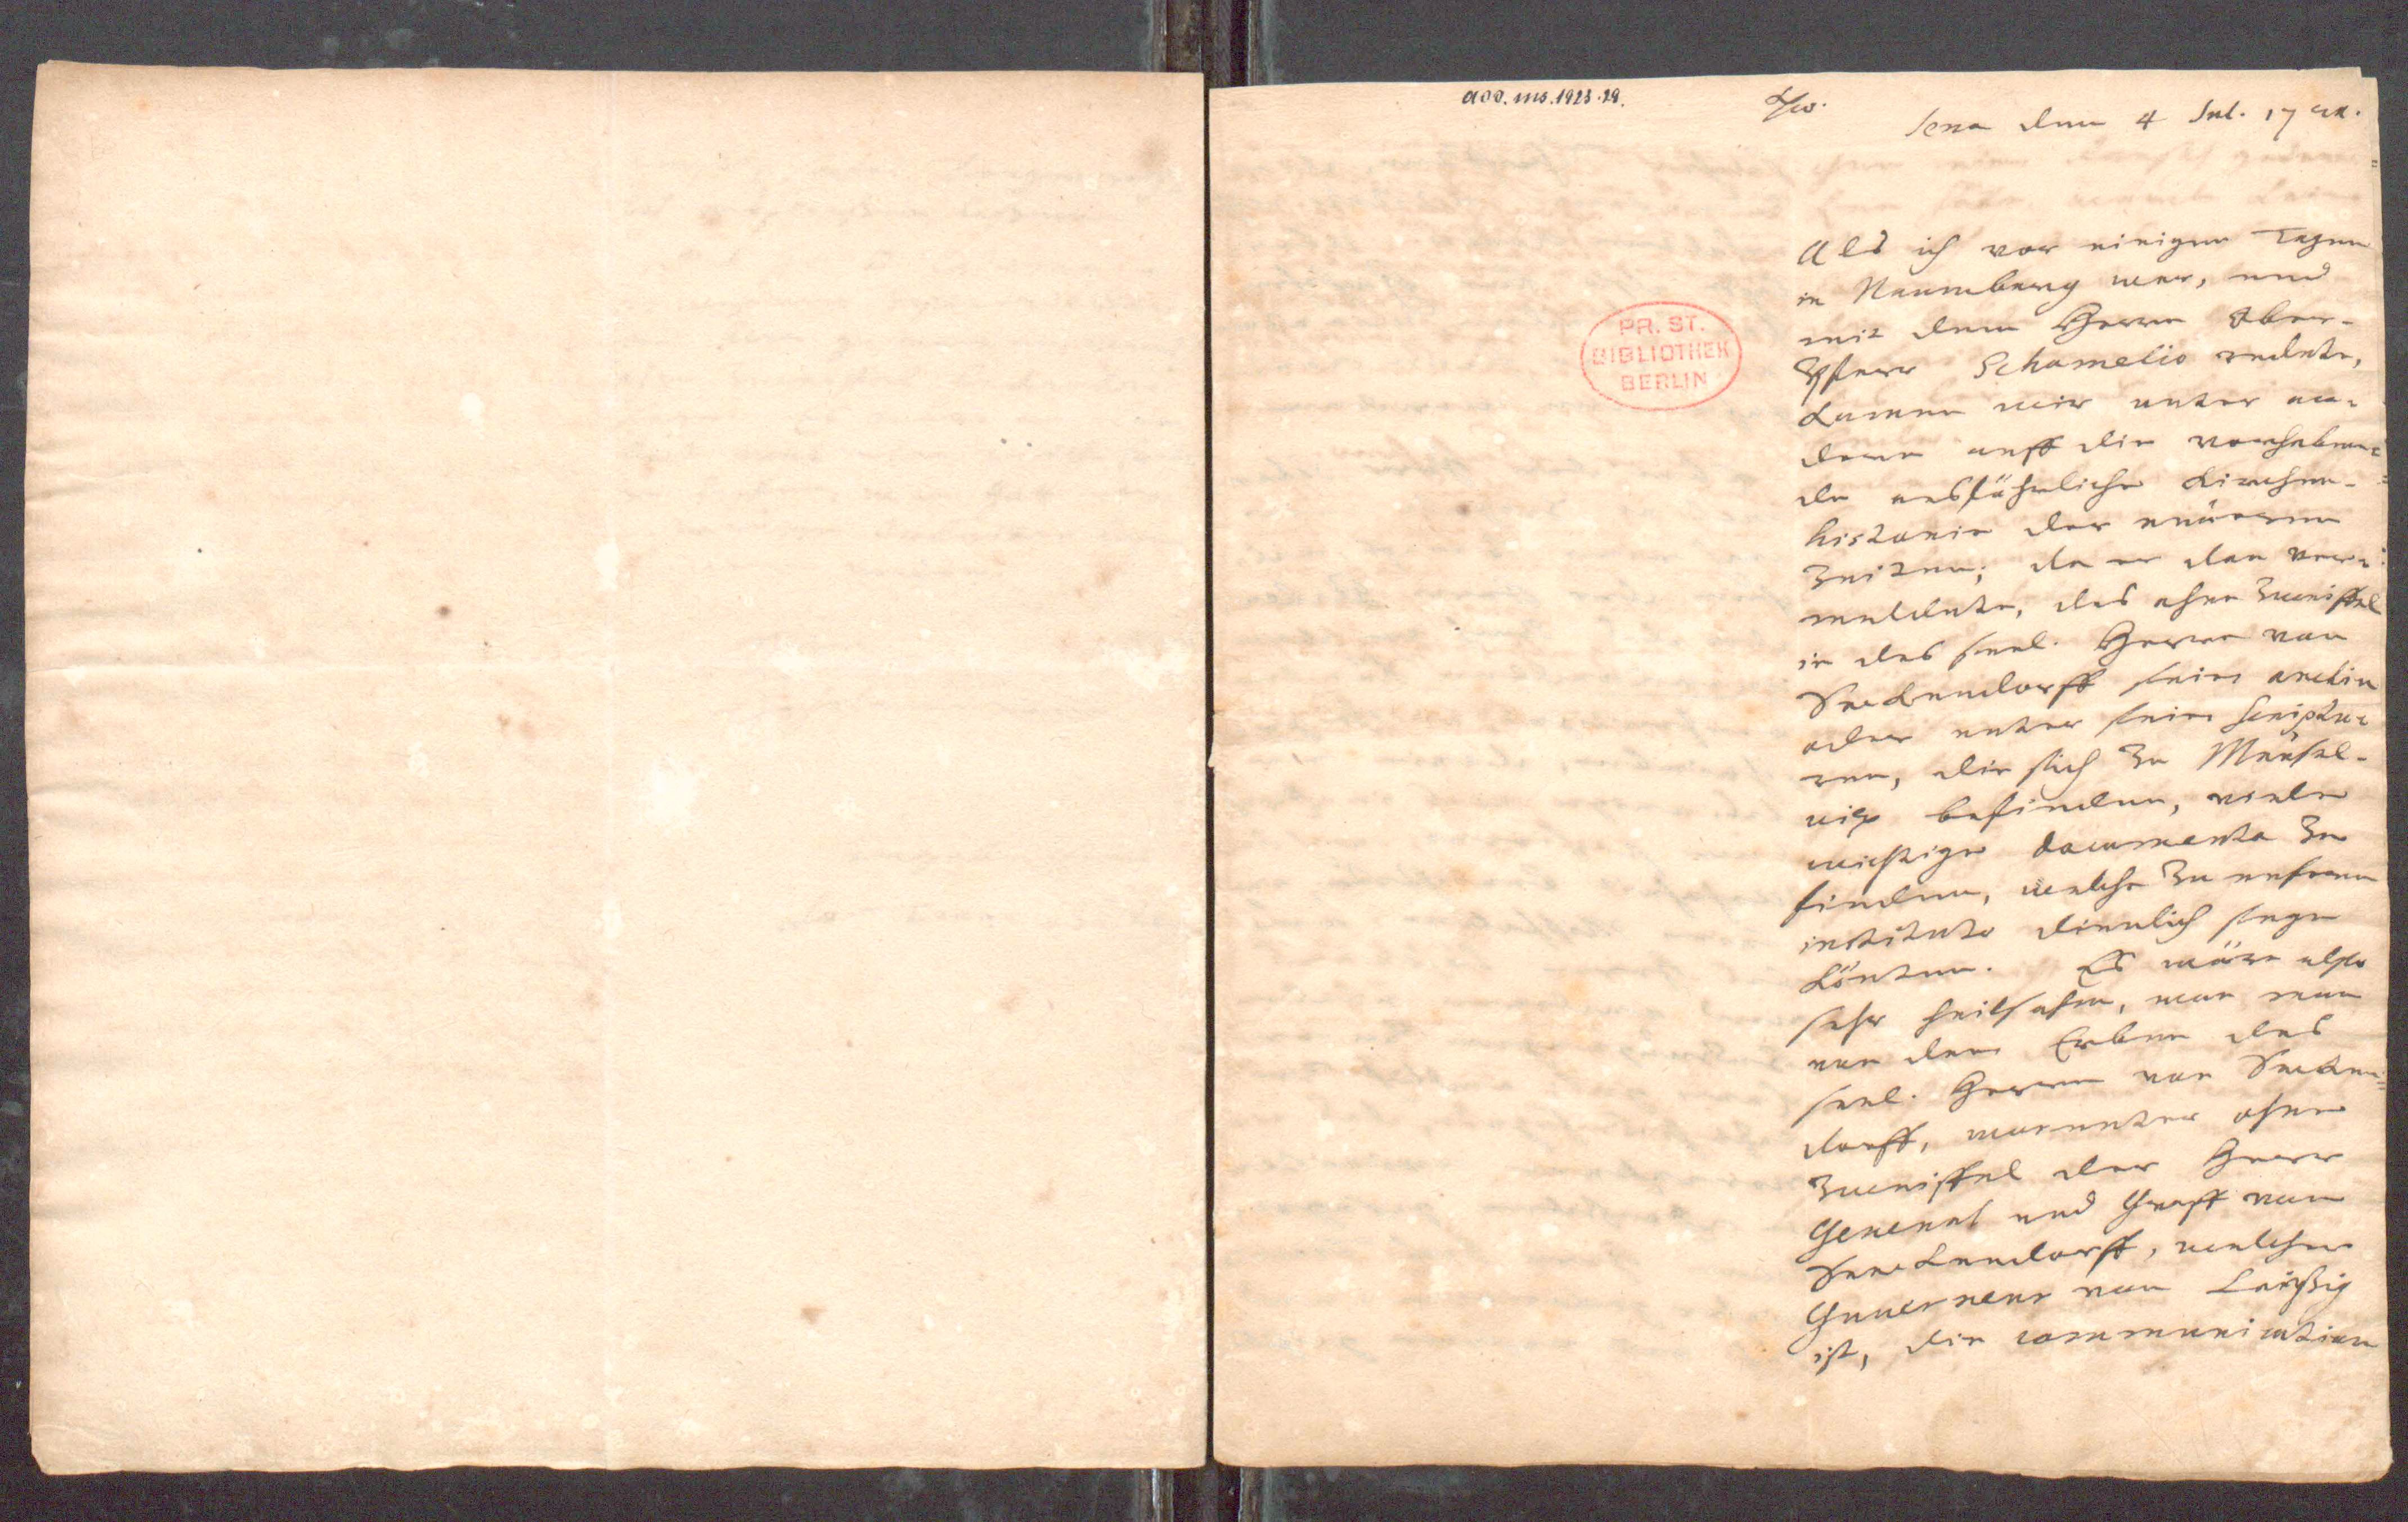 acc. ms. 1923. 29.
Jena den 4 Jul. 17
Als ich vor einigen Tagen
in Naumburg war, und
mit dem Herrn Ober-
Pfarr Schamelio redete,
kamen wir unter an-
dern auff die vorhaben-
de ausführliche Kirchen-
historie der neüeren
Zeiten; da er dan ver-
meldete, das ohne Zweiffel
in des seel. Herrn von
Seckendorff sein archiv
oder unter sein scriptu-
ren, die sich zu Meüsel-
witz befinden, viele
wichtige documenta zu
finden, welche zu unserem
instituto dienlich seyn
könten. Es wäre also
sehr heilsahm, wan man
von den Erben des
seel. Herren von Secken-
dorff, worunter ohne
Zweiffel der Herr
General und Graff von
Seeckendorff, welcher
Guverneur von Leipzig
ist, die communication
PR. ST.
BIBLIOTHEK
BERLIN